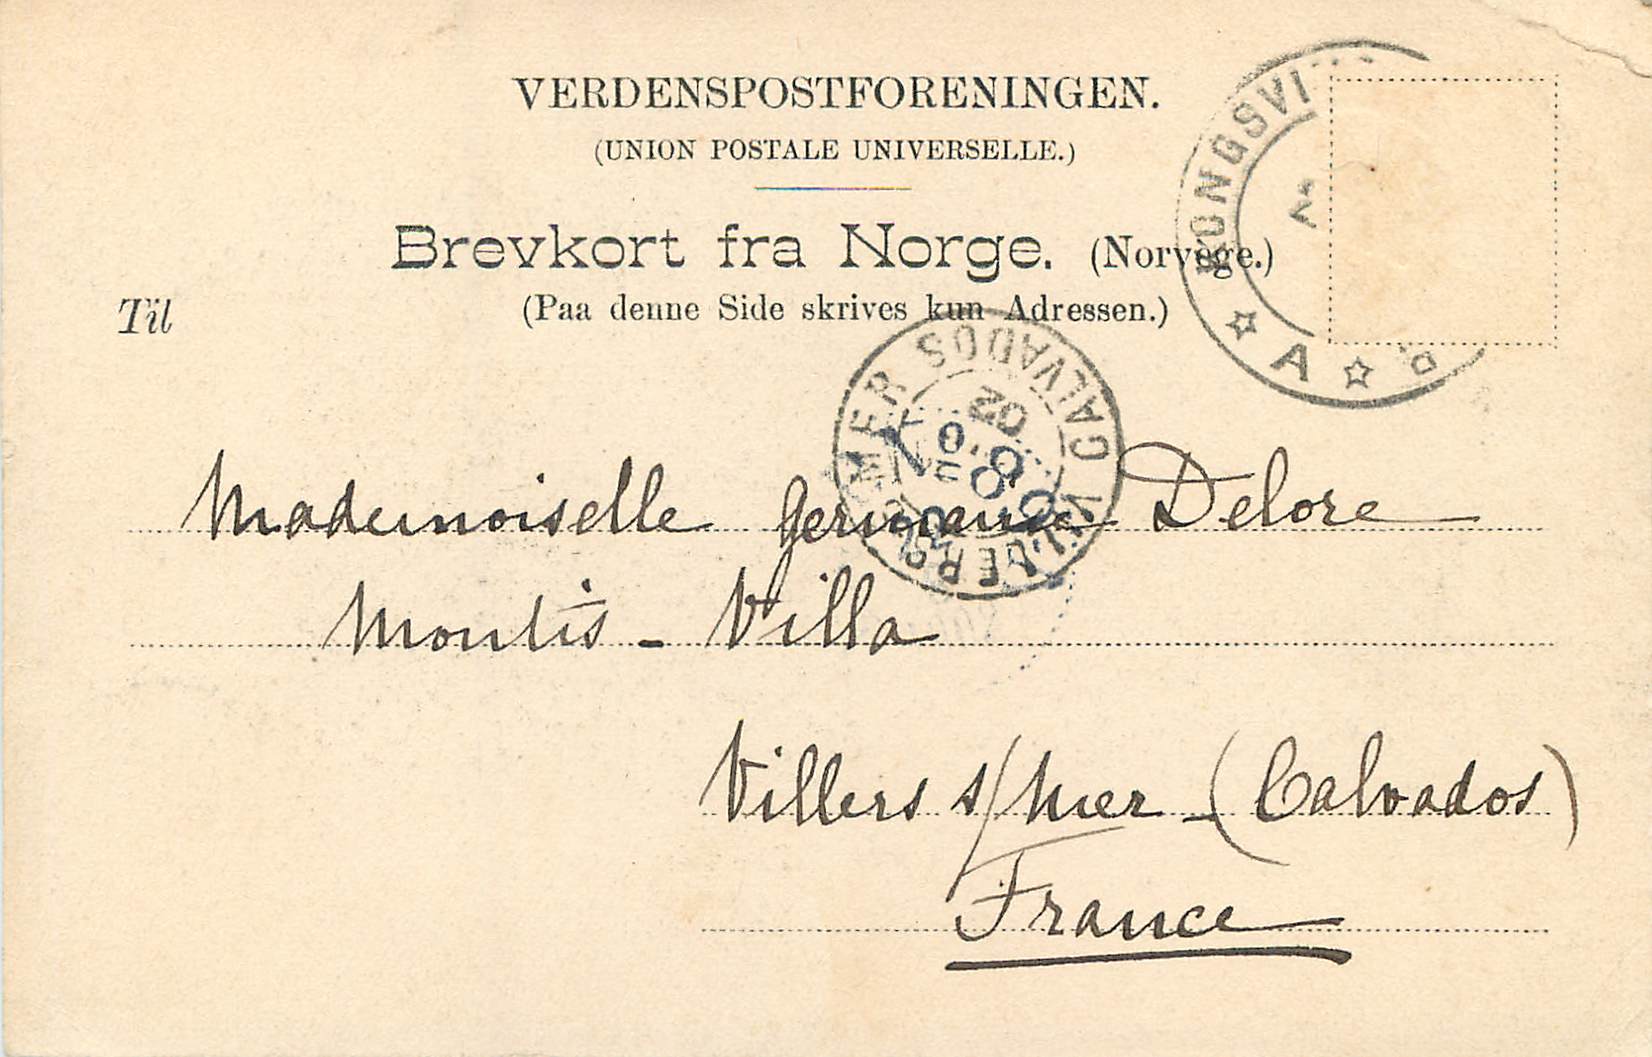 VERDENSPOSTFORENINGEN.
(UNION POSTALE UNIVERSELLE.)
Brevkort fra Norge. (Norvège.)
(Paa denne Side skrives kun Adressen.)
Til
KONGSVI
A
VILLERS S MER CALVADOS
02
Mademoiselle Germaine Delore
Montis - Villa
Villers s/Mer - (Calvados)
France